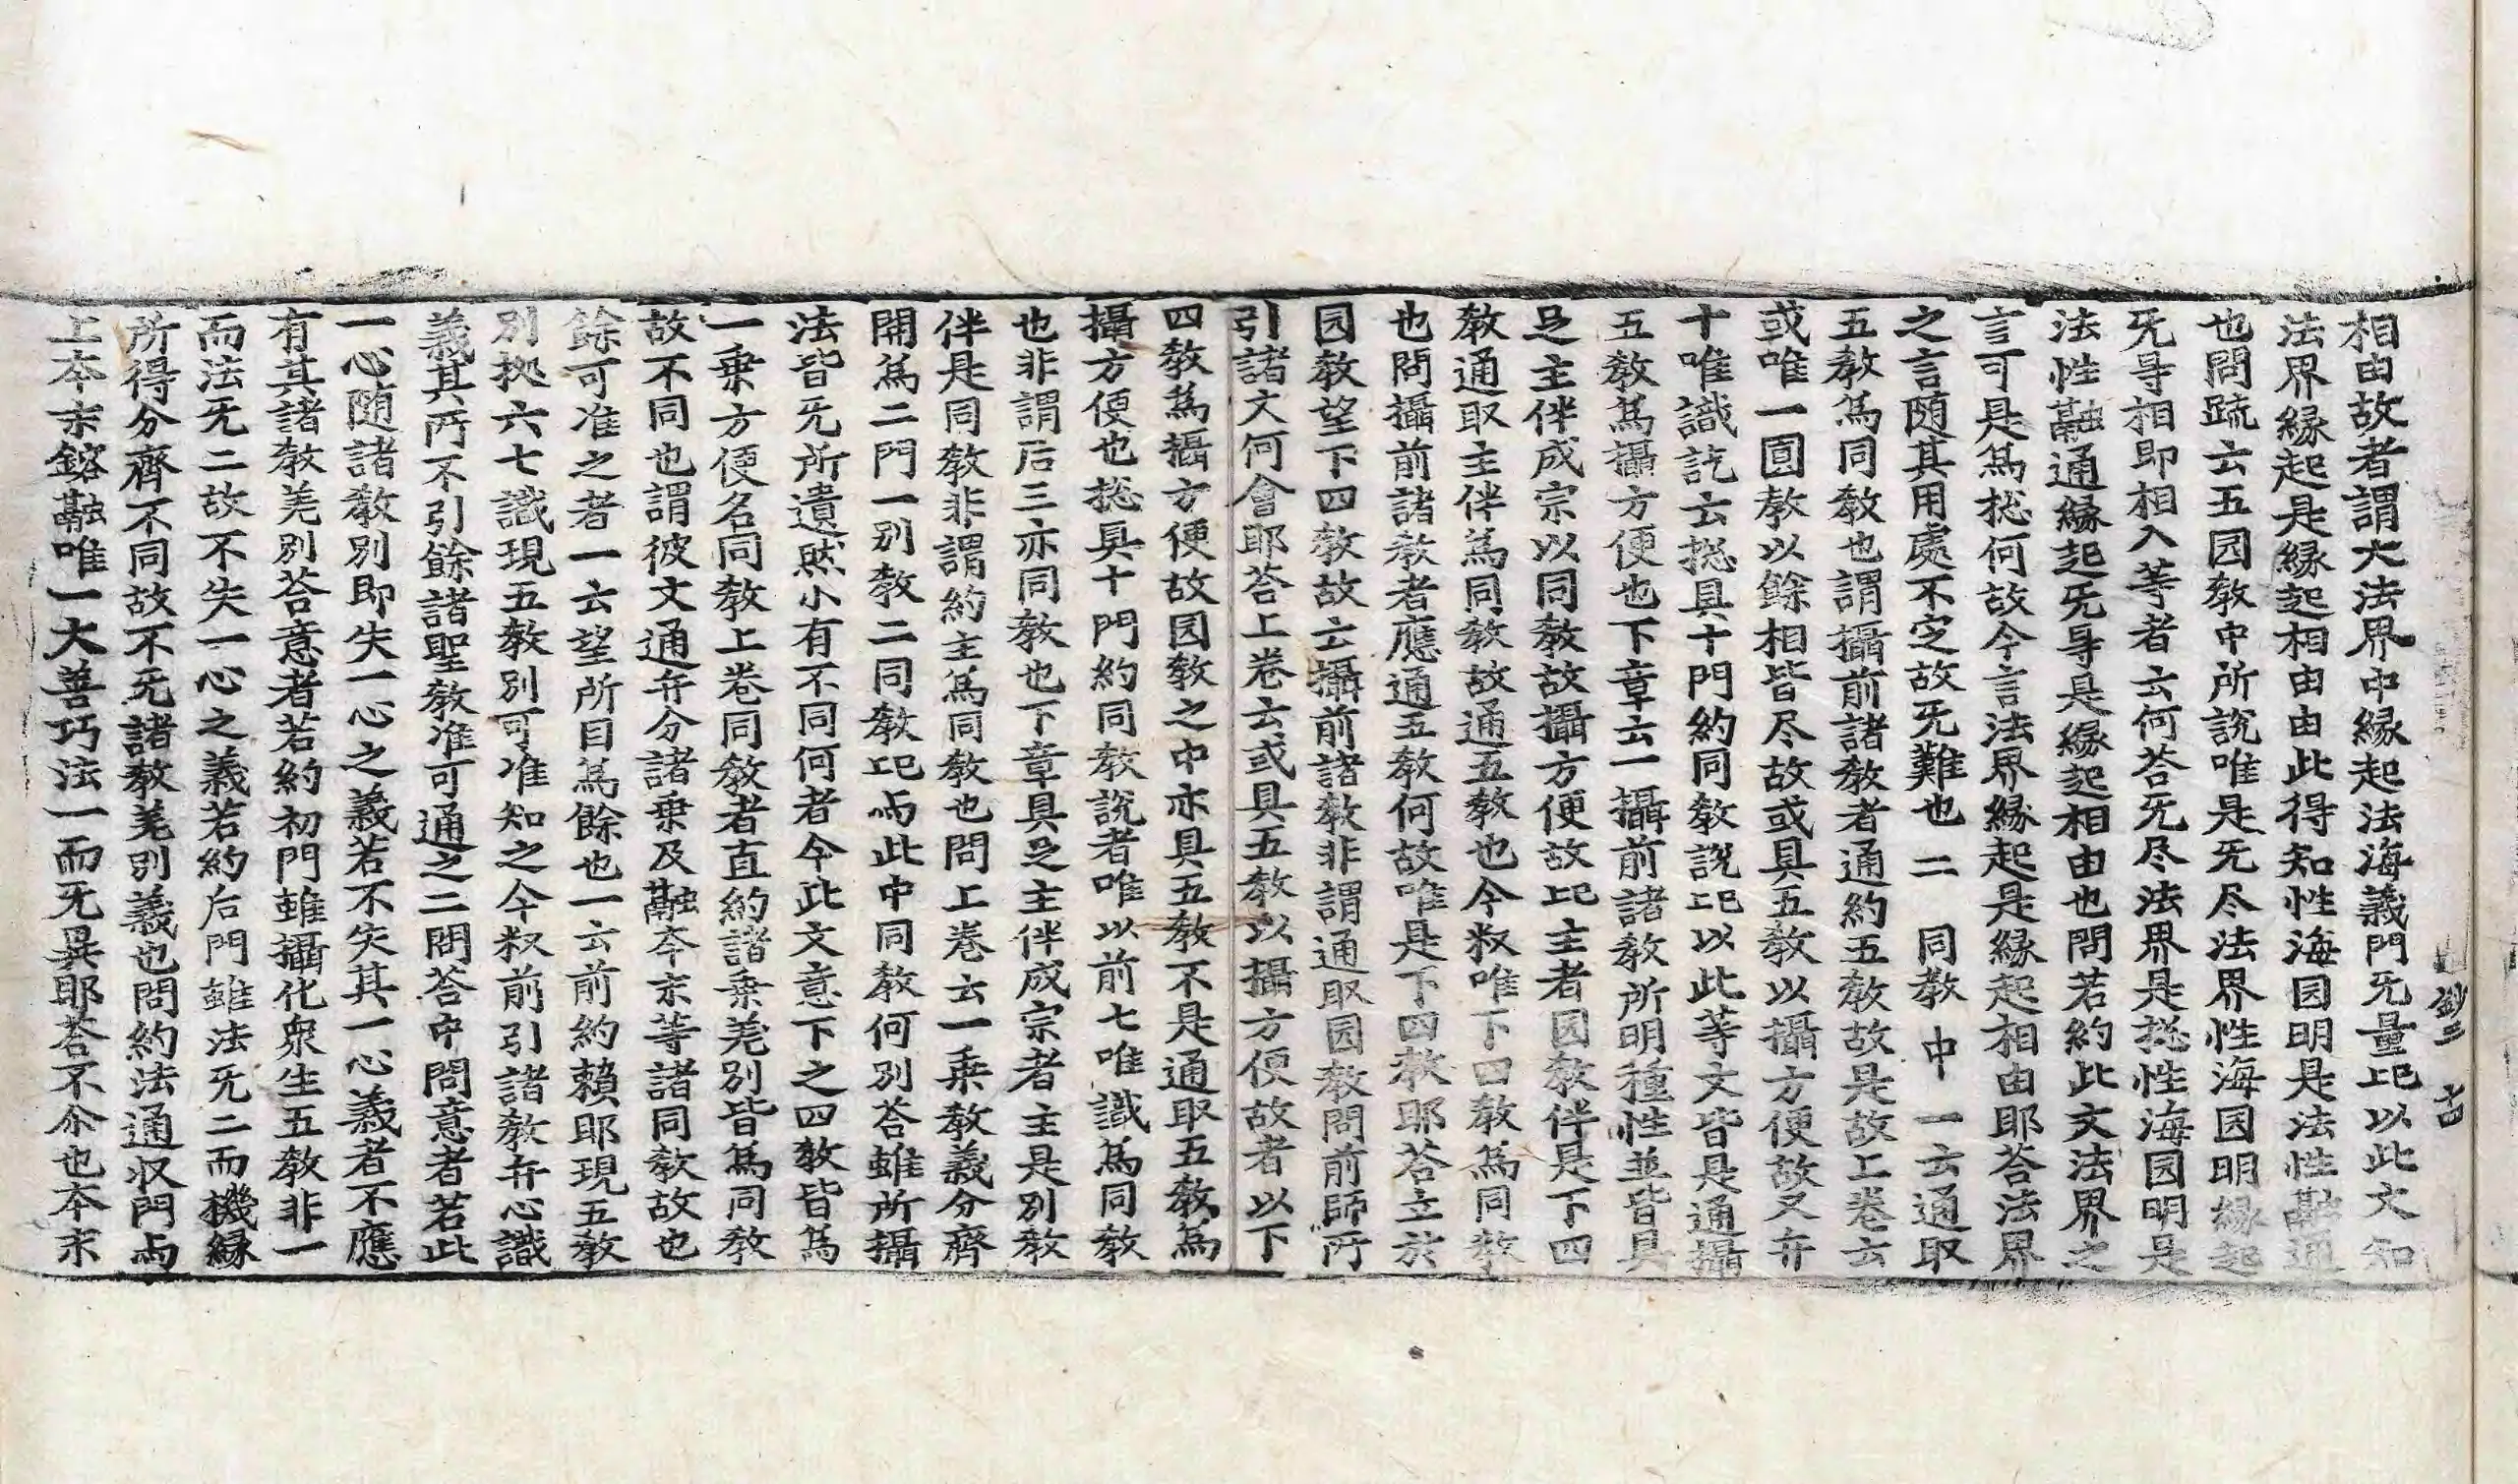 相由故者謂大法界中緣起法海義門旡量㠯以此文知
法界緣起是緣起相由由此得知性海囩明是法性融通
也問䟽云五囩教中所說唯是旡尽法界性海囩明緣起
旡㝵相即相入等者云何荅旡尽法界是捴性海囩明是
法性融通緣起旡㝵是緣起相由也問若約此文法界之
言可是爲捴何故今言法界緣起是緣起相由耶荅法界
之言随其用處不㝎故旡難也 二 同教 中 一云通取
五教爲同教也謂攝前諸教者通約五教故是故上卷云
或唯一圓教以餘相皆尽故或具五教以攝方便故又弁
十唯識訖云捴具十門約同教說㠯以此等文皆是通攝
五教爲攝方便也下章云一攝前諸教所明種性並皆具
足主伴成宗以同教故攝方便故㠯主者囩教伴是下四
教通取主伴爲同教故通五教也今䊵唯下四教爲同教
也問攝前諸教者應通五教何故唯是下四教耶荅立於
囩教望下四教故云攝前諸教非謂通取囩教問前師所
引諸文何會耶荅上卷云或具五教以攝方便故者以下
四教爲攝方便故囩教之中亦具五教不是通取五教爲
攝方便也捴具十門約同教說者唯以前七唯識爲同教
也非謂后三亦同教也下章具足主伴成宗者主是別教
伴是同教非謂約主爲同教也問上卷云一乗教義分齊
開爲二門一別教二同教㠯而此中同教何別荅雖所攝
法皆旡所遺然小有不同何者今此文意下之四教皆爲
一乗方便名同教上卷同教者直約諸乗羌別皆爲同教
故不同也謂彼文通弁分諸乗及融夲末等諸同教故也
餘可准之者一云望所目爲餘也一云前約頼耶現五教
別㧾六七識現五教別可准知之今䊵前引諸教弁心識
義其所不引餘諸聖教准可通之二問荅中問意者若此
一心随諸教別即失一心之義若不失其一心義者不應
有其諸教羌別荅意者若約初門雖攝化衆生五教非一
而法旡二故不失一心之義若約后門雖法旡二而機緣
所得分齊不同故不旡諸教羌別義也問約法通収門而
上夲末鎔融唯一大善巧法一而旡異耶荅不尒也夲末
鈔三 十古